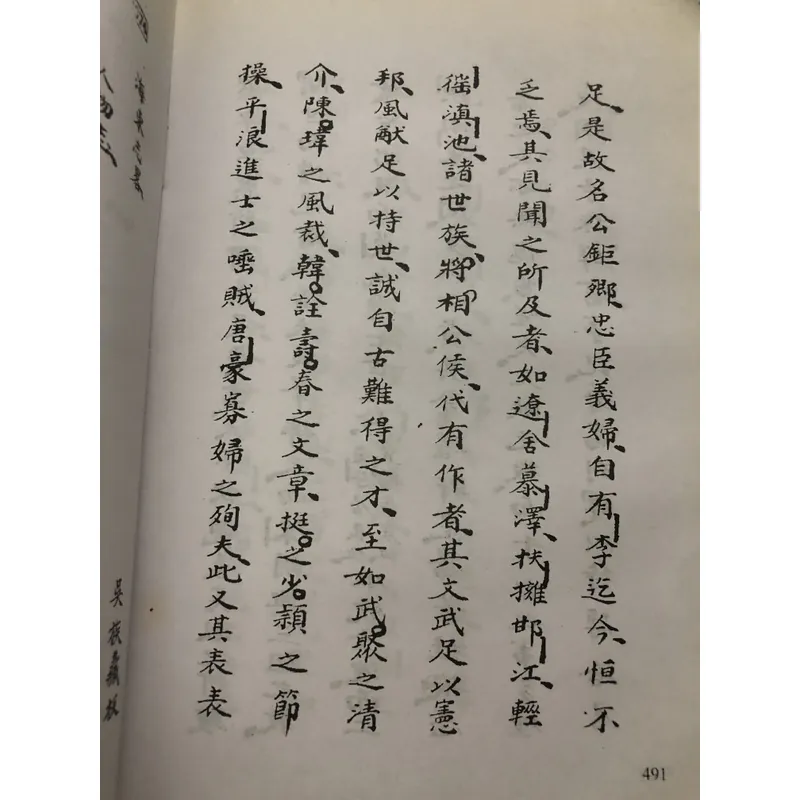 足是故名公鉅卿忠臣義婦自有李迄今恒不
乏焉其見聞之所及者如遼舍慕澤扶擁邯江輕
徭滇池諸世族將相公侯代有作者其文武足以憲
邦風猷足以持世誠自古難得之才至如武聚之清
介陳瑋之風裁韓詮壽春之文章挺之少穎之節
操平浪進士之唾賊唐豪寡婦之殉夫此又其表表
491